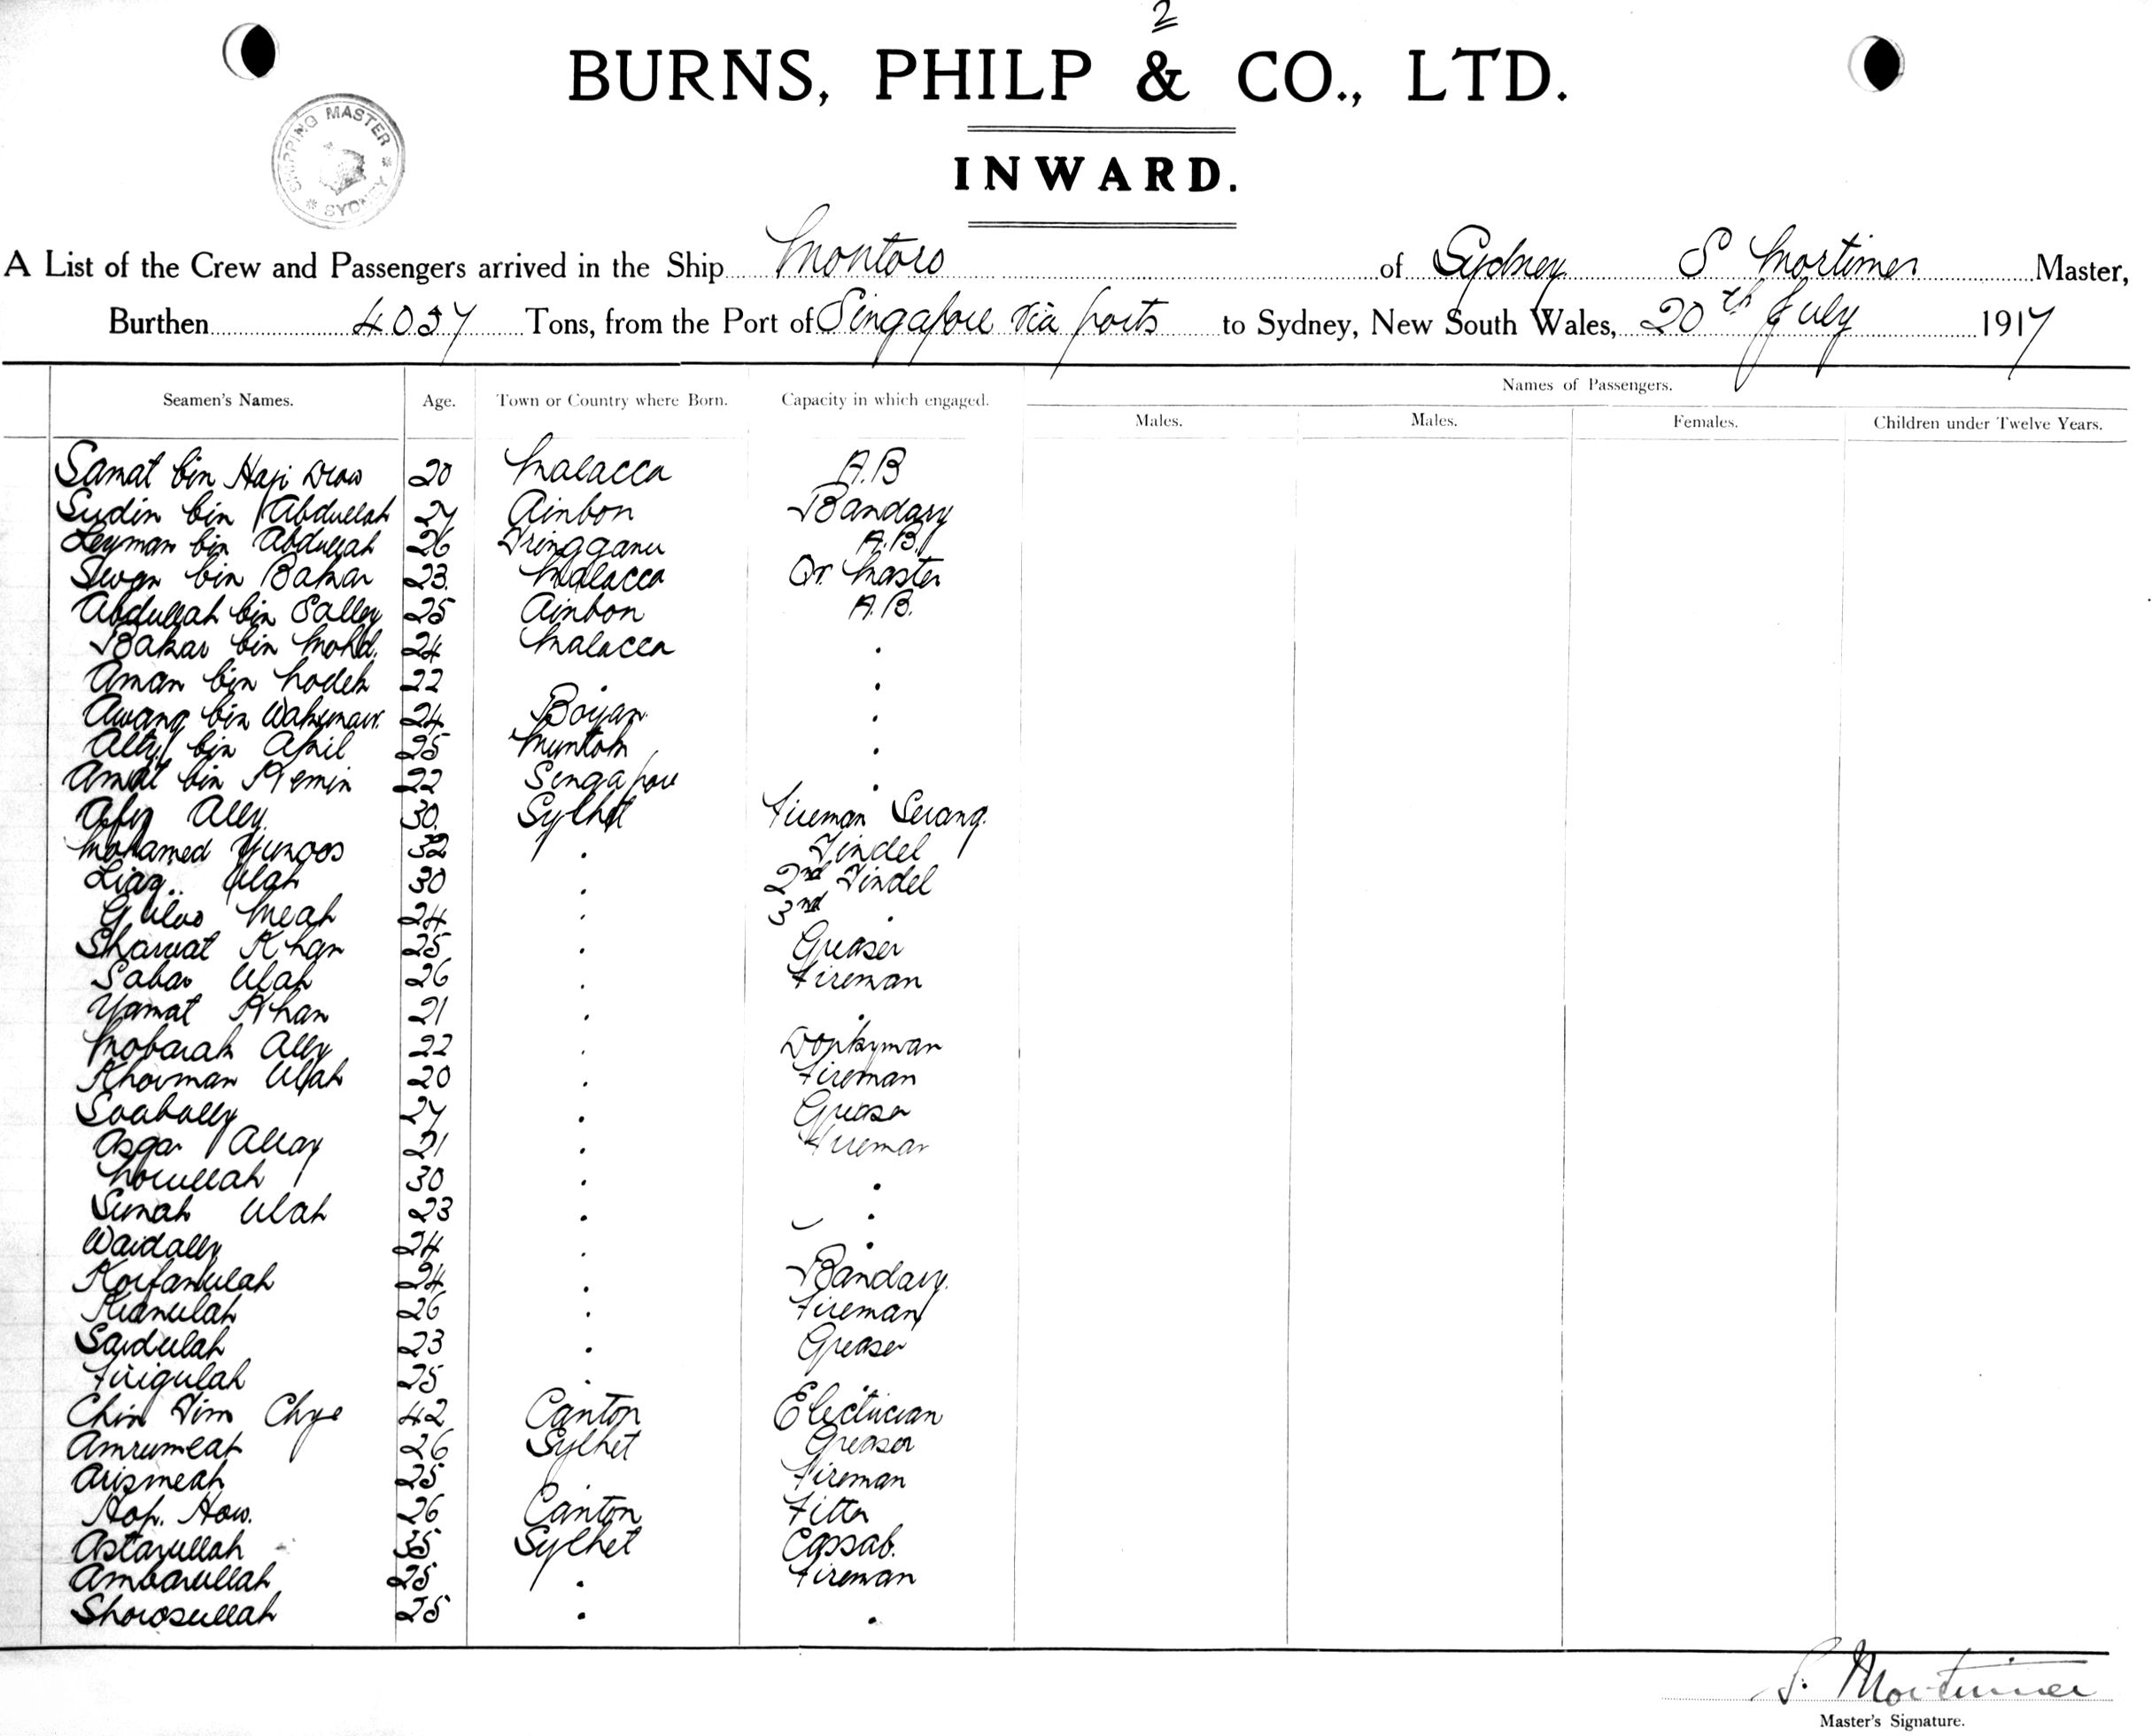 2
BURNS, PHILP & CO., LTD.
SHIPPING MASTER
SYDNEY
INWARD.
A List of the Crew and Passengers arrived in the Ship Montoro of Sydney S Mortimer Master,
Burthen 4057 Tons, from the Port of Singapore via ports to Sydney, New South Wales, 20th July 1917
Names of Passengers.
Seamen's Names. Age. Town or Country where Born. Capacity in which engaged. Males. Males. Females. Children under Twelve Years.
Samat bin Haji 20 Malacca A.B
Sudin bin Abdullah 27 Ainbon Bandary
Leyman bin Abdullah 26 Tringganu A.B.
bin Bakar 23. Malacca Qr. Master
Abdullah bin Salley 25 Ainbon A.B.
Bakar bin Mohd. 24 Malacca .
Aman bin 22 . .
Awang bin 24 Boyan .
bin April 25 Muntok .
Amat bin 22 Singapore .
Ally 30. Sylhet Fireman Serang.
Mohamed Yunoos 32 . Tindel
Ulah 30 . 2nd Tindel
Meah 24 . 3nd .
Sharwat Khan 25 . Greaser
Sabar Ulah 26 . Fireman
Yamat Khan 21 . .
Mobarak Ally 22 . Donkyman
Khorman Ulah 20 . Fireman
Soabally 27 . Greaser
Asgar Allay 21 . Fireman
Norullah 30 . .
Sunah Ulah 23 . .
Waidally 24 . .
24 . Bandary.
Kianulah 26 . Fireman
Saidulah 23 . Greaser
Firigulah 25 . .
Chin Tim Chye 42 Canton Electrician
Amrumeah 26 Sylhet Greaser
Arismeah 25 . Fireman
Hop. How. 26 Canton Fitter
Astarullah 35 Sylhet Cassab.
Ambarullah 25 . Fireman
Shorosullah 25 . .
S. Mortimer
Master's Signature.